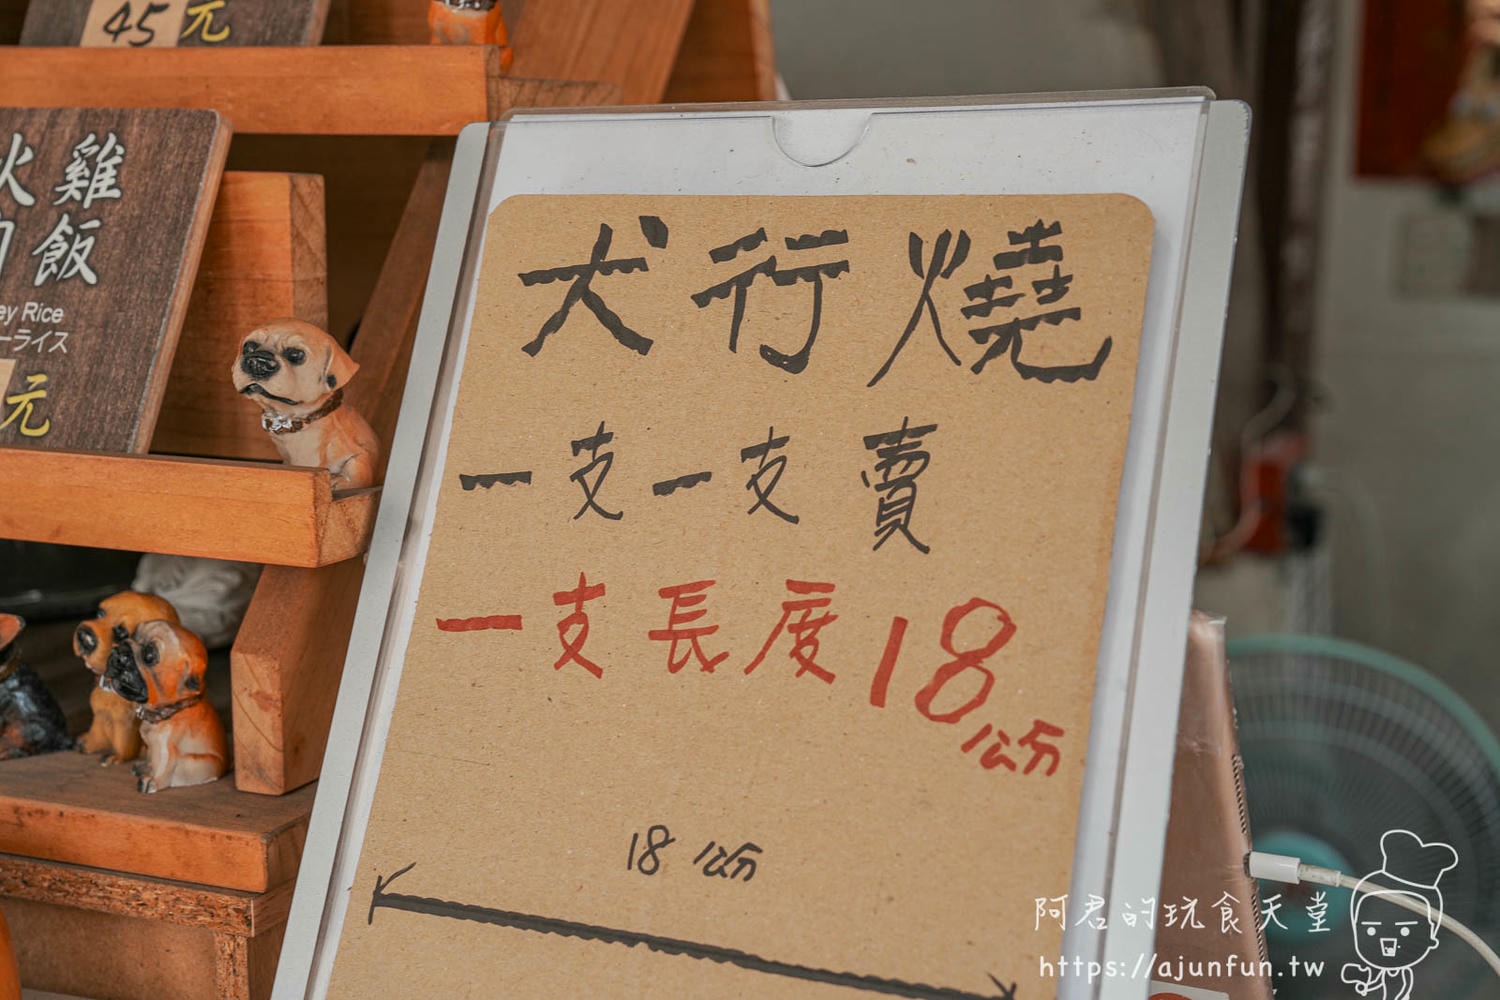 45元
火雞
肉飯
ey Rice
ーライス
元
犬行燒
一支一支賣
一支長度18公分
18公分
阿君的玩食天堂
https://ajunfun.tw